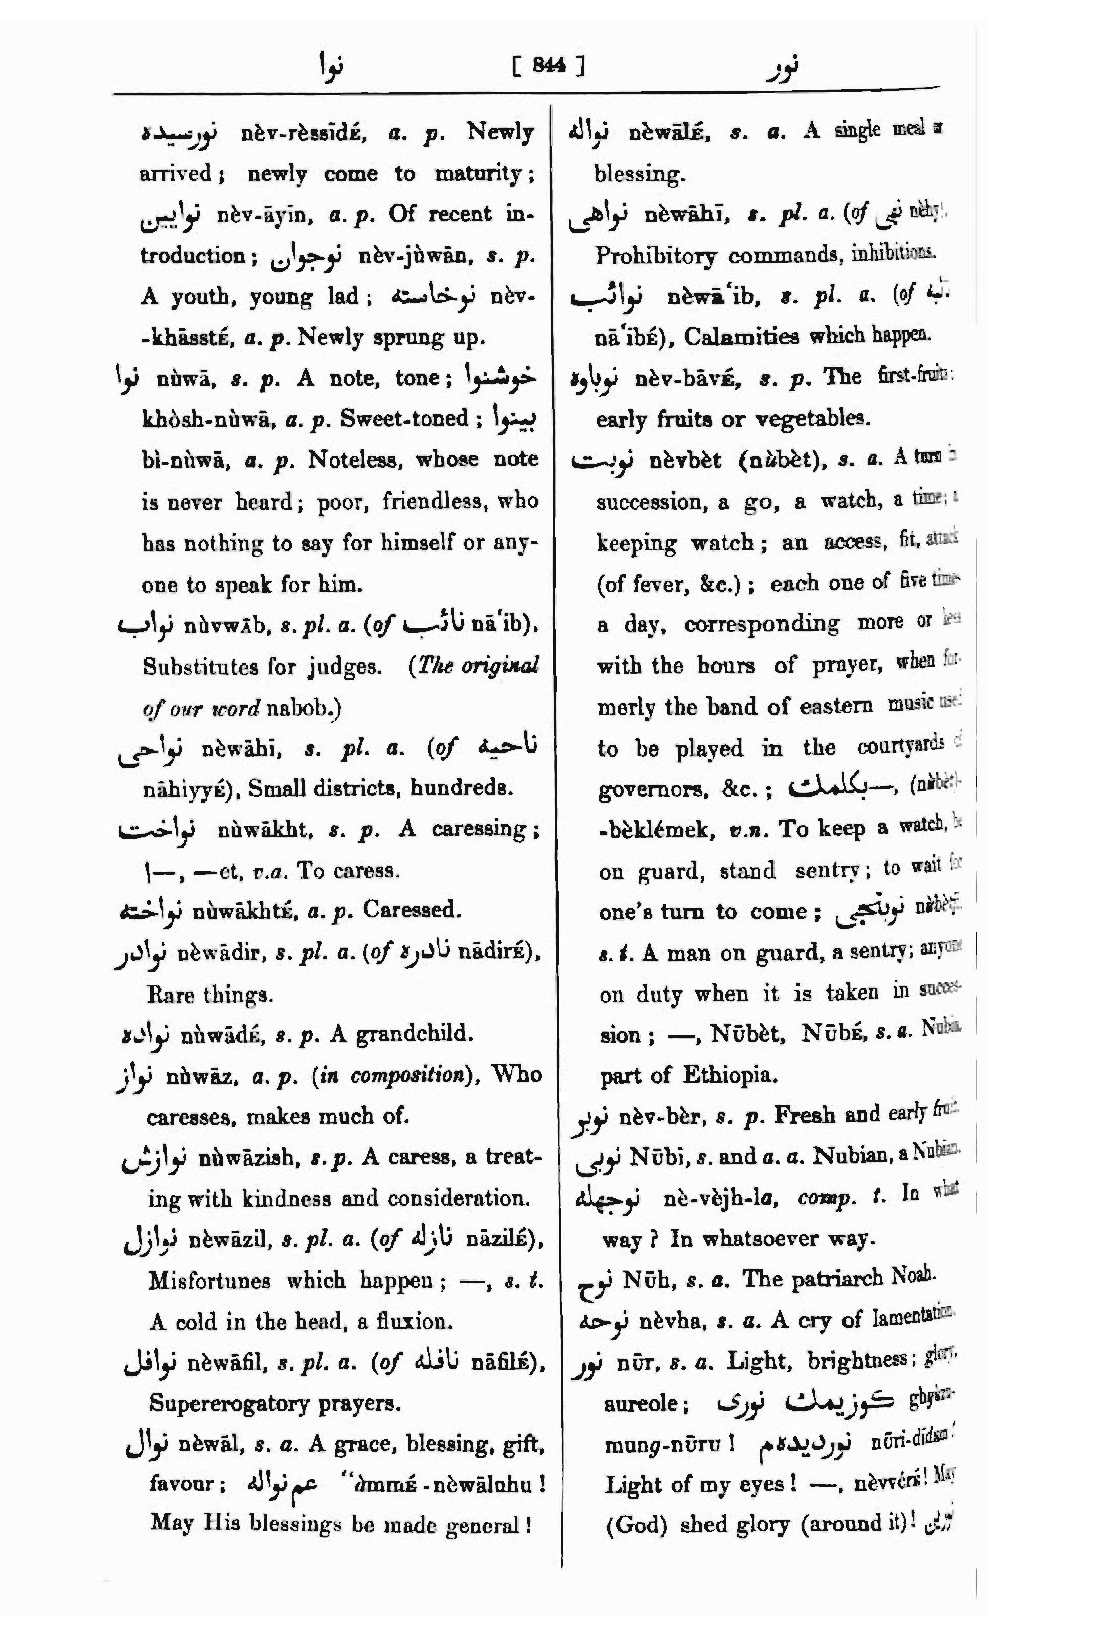 نوا [ 844 ] نور
نورسیده nèv-rèssīdÉ, a. p. Newly
arrived; newly come to maturity;
نوایین nèv-āyīn, a. p. Of recent in-
troduction; نوجوان nèv-jùwān, s. p.
A youth, young lad; نوخاسته nèv-
-khāsstÉ, a. p. Newly sprung up.
نوا nùwā, s. p. A note, tone; خوشنوا
khòsh-nùwā, a. p. Sweet-toned; بینوا
bì-nùwā, a. p. Noteless, whose note
is never heard; poor, friendless, who
has nothing to say for himself or any-
one to speak for him.
نواب nùvwāb, s. pl. a. (of نائب nā'ib),
Substitutes for judges. (The original
of our word nabob.)
نواحی nèwāhī, s. pl. a. (of ناحیه
nāhiyyÉ), Small districts, hundreds.
نواخت nùwākht, s. p. A caressing;
ا—, —et, v.a. To caress.
نواخته nùwākhtÉ, a. p. Caressed.
نوادر nèwādir, s. pl. a. (of نادره nādirÉ),
Rare things.
نواده nùwādÉ, s. p. A grandchild.
نواز nùwāz, a. p. (in composition), Who
caresses, makes much of.
نوازش nùwāzish, s. p. A caress, a treat-
ing with kindness and consideration.
نوازل nèwāzil, s. pl. a. (of نازله nāzilÉ),
Misfortunes which happen; —, s. t.
A cold in the head, a fluxion.
نوافل nèwāfil, s. pl. a. (of نافله nāfilÉ),
Supererogatory prayers.
نوال nèwāl, s. a. A grace, blessing, gift,
favour; عم نواله "àmmÉ-nèwāluhu!
May His blessings be made general!
نواله nèwālÉ, s. a. A single meal or
blessing.
نواهی nèwāhī, s. pl. a. (of نهی nèhy),
Prohibitory commands, inhibitions.
نوائب nèwā'ib, s. pl. a. (of
nā'ibÉ), Calamities which happen.
نوباوه nèv-bāvÉ, s. p. The first-fruits;
early fruits or vegetables.
نوبت nèvbèt (nùbèt), s. a. A turn
succession, a go, a watch, a time; a
keeping watch; an access, fit, attack
(of fever, &c.); each one of five times
a day, corresponding more or less
with the hours of prayer, when for-
merly the band of eastern music used
to be played in the courtyards of
governors, &c.; —بکلمك, (nùbèt)-
-bèklémek, v.n. To keep a watch, be
on guard, stand sentry; to wait for
one's turn to come; نوبتجی
s. t. A man on guard, a sentry; anyone
on duty when it is taken in succes-
sion; —, Nūbèt, NūbÉ, s. a. Nubia,
part of Ethiopia.
نوبر nèv-bèr, s. p. Fresh and early fruit.
نوبی Nūbi, s. and a. a. Nubian, a Nubian.
نوجهله nè-vèjh-la, comp. t. In what
way? In whatsoever way.
نوح Nūh, s. a. The patriarch Noah.
نوحه nèvha, s. a. A cry of lamentation.
نور nūr, s. a. Light, brightness; glory,
aureole; کوزیمك نوری
mung-nūru! نوردیدهم nūri-dīdèm!
Light of my eyes! —, nèvvéré! May
(God) shed glory (around it)!